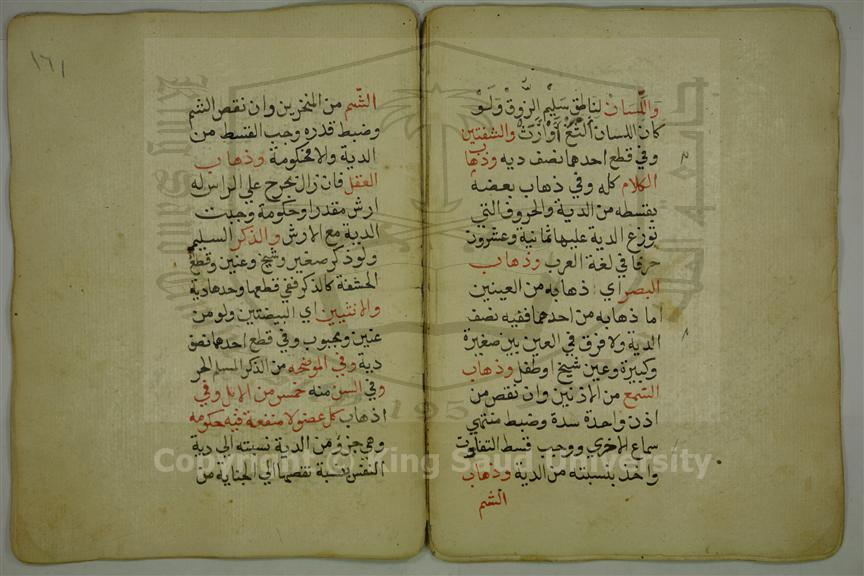 واللسان لناطق سليم الزوق ولو
كان اللسان ألثغ أو أرت والشفتين
وفي قطع احدهما نصف دية وذهاب
الكلام كله وفي ذهاب بعضه
بقسطه من الدية والحروف التي
توزع الدية عليها ثمانية وعشرون
حرفا في لغة العرب وذهاب
البصر اي ذهابه من العينين
اما ذهابه من احدهما ففيه نصف
الدية ولا فرق في العين بين صغيرة
وكبيرة وعين شيخ او طفل وذهاب
السمع من الاذنين وان نقص من
اذن واحدة سدة وضبط منتهي
سماع الاخري ووجب قسط التفاوت
واخذ بنسبته من الدية وذهاب
الشم
١٦١
الشم من المنخرين وان نقص الشم
وضبط قدره وجب القسط من
الدية والا فحكومة وذهاب
العقل فان زال بجرح علي الراس له
ارش مقدر او حكومة وجبت
الدية مع الارش والذكر السليم
ولو ذكر صغير وشيخ وعنين وقطع
الحشفة كالذكر ففي قطعها وحدها دية
والانثيين اي البيضتين ولو من
عنين ومجبوب وفي قطع احدهما نصف
دية وفي الموضحه من الذكر المسلم الحر
وفي السن منه خمس من الابل وفي
اذهاب كل عضو لا منفعة فيه حكومه
وهي جزؤ من الدية نسبته الي دية
النفس نسبة نقصها الي الجناية من
Copyright © King Saud University
جامعة الملك سعود
King Saud University
195